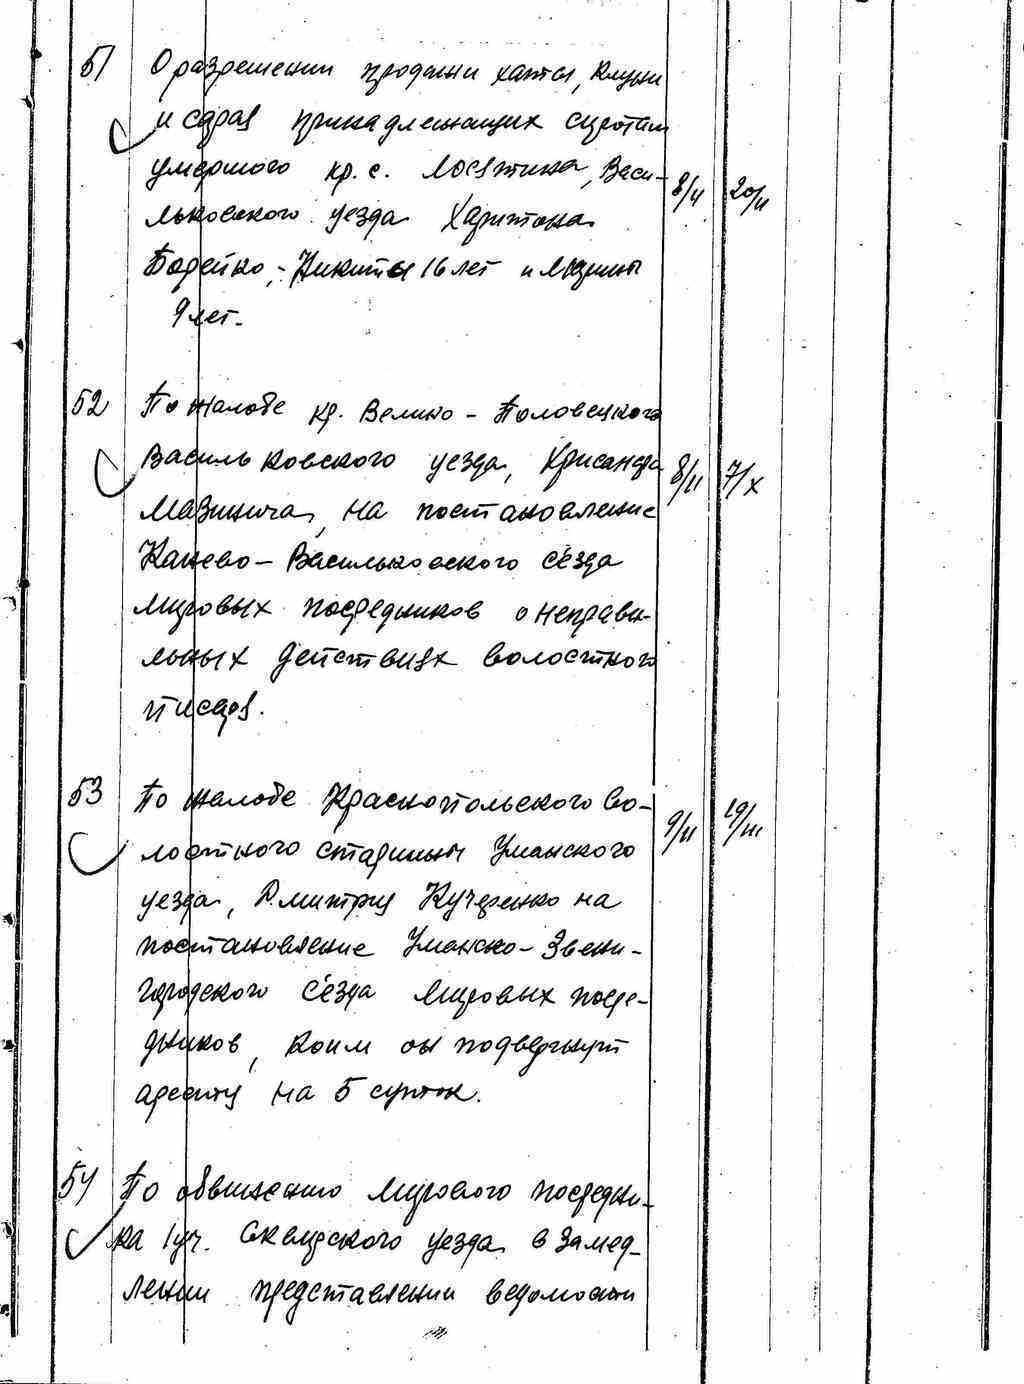 51 О разрешении продажи хаты, клуни
и сарая принадлежащих сиротам
умершого кр. с. Лосятина, Васи-
лковского уезда Харитона 8/II 20/II
Бодейко, - Никиты 16 лет и Марины
9 лет.
52 По жалобе кр. Велико - Половецкого
Васильковского уезда, Хрисанфа 8/II 7/X
Мазинича, на постановление
Канево - Васильковского съезда
мировых посредников о неправи-
льных действиях волостного
писаря.
53 По жалобе Краснопольского во-
лостного старшины Уманского 9/II 19/III
уезда, Дмитрия Кучеренко на
постановление Уманско - Звени-
городского съезда мировых посре-
дников, коим он подвергнут
аресту на 5 суток.
54 По обвинению мирового посредни-
ка 1 уч. Сквирского уезда в замед-
лении представлении ведомости